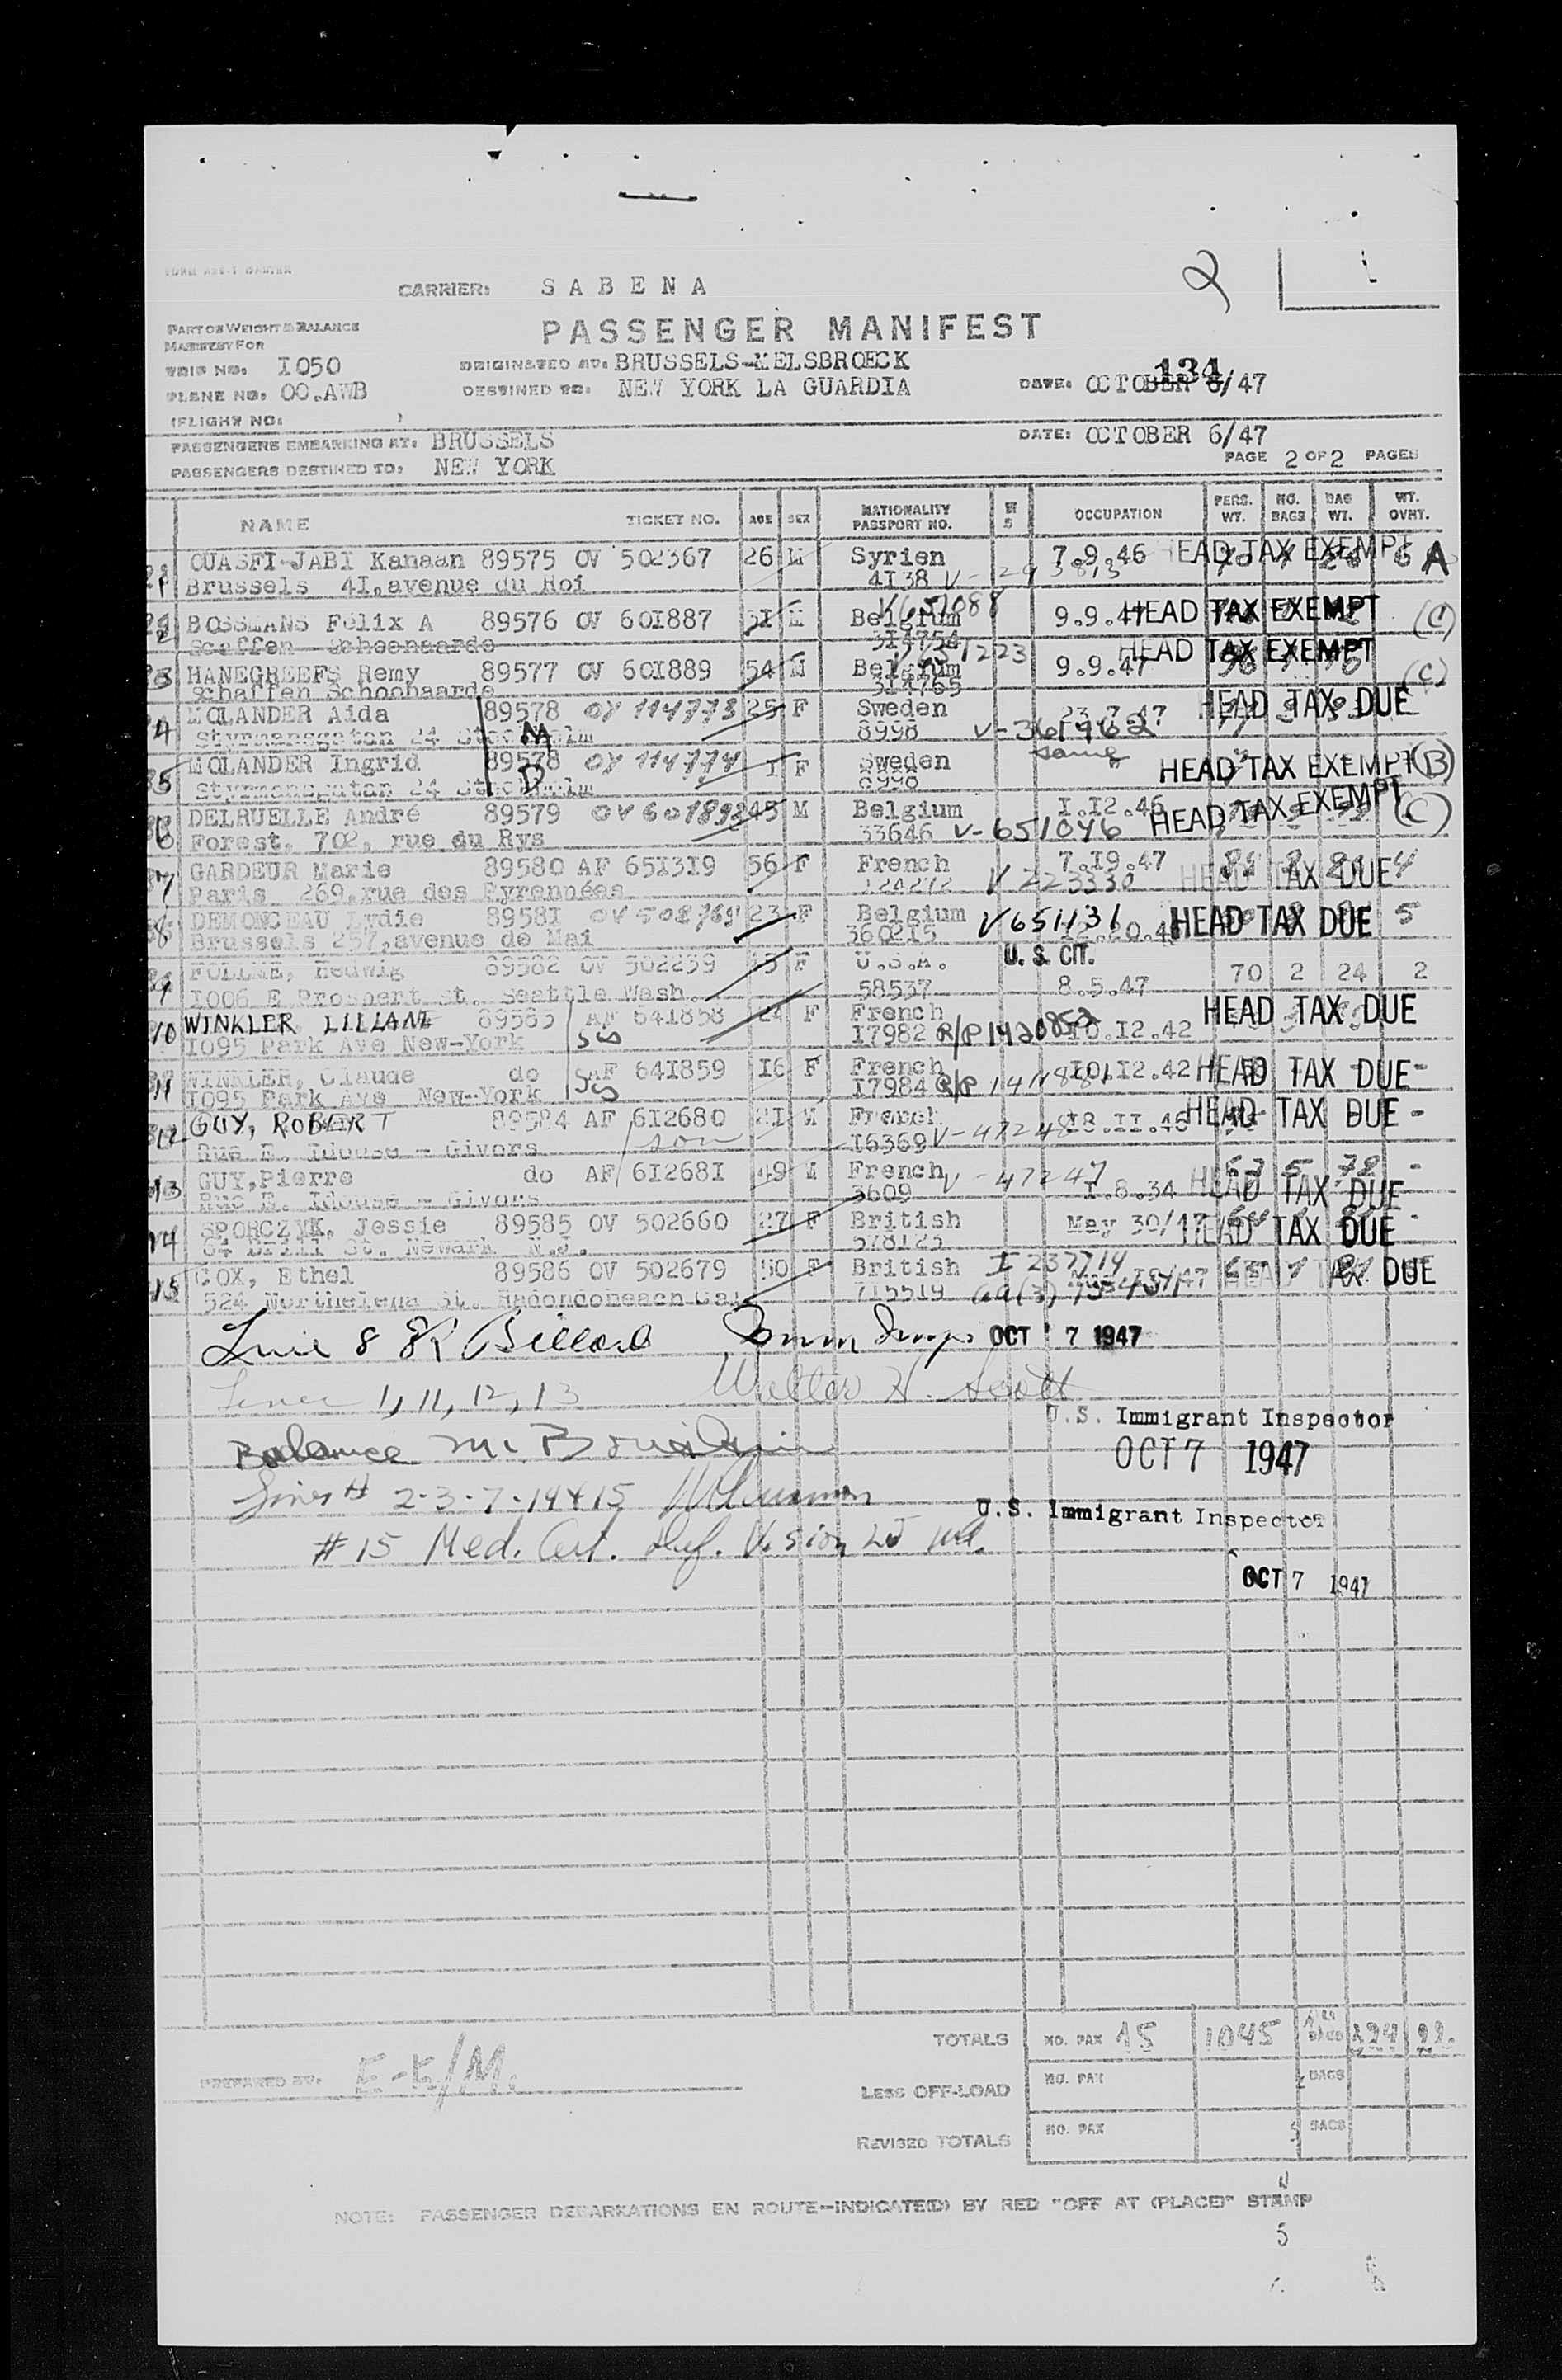 2
CARRIER: SABENA
PART OF WEIGHT & BALANCE
MANIFEST FOR
PASSENGER MANIFEST
TRIP NO. I050
ORIGINATED AT: BRUSSELS-MELSBROECK
134
PLANE NO. OO.AWB
DESTINED TO: NEW YORK LA GUARDIA
DATE: OCTOBER 6/47
(FLIGHT NO: )
PASSENGERS EMBARKING AT: BRUSSELS
DATE: OCTOBER 6/47
PASSENGERS DESTINED TO: NEW YORK
PAGE 2 OF 2 PAGES
NAME TICKET NO. AGE SEX NATIONALITY PASSPORT NO. OCCUPATION PERS. WT. NO. BAGS BAG WT. WT. OVHT.
OUASFI-JABI Kanaan 89575 OV 502367 26 M Syrien 7.9.46 HEAD TAX EXEMPT 6 A
Brussels 4I,avenue du Roi 4I38
BOSSMANS Félix A 89576 OV 60I887 3I M Belgium V651088 9.9.47 HEAD TAX EXEMPT (C)
Scaffen Schoonaarde 3I4754
HANEGREEFS Remy 89577 OV 60I889 54 M Belgium 9.9.47 HEAD TAX EXEMPT (C)
Schaffen Schoonaarde 3I4765
4 MOLANDER Aida 89578 OY 114773 25 F Sweden 23.7.47 HEAD TAX DUE
Styrmansgatan 24 Stockholm 8998 V-361962
5 MOLANDER Ingrid 89578 OY 114774 I F Sweden same HEAD TAX EXEMPT (B)
Styrmansgatan 24 Stockholm 8998
6 DELRUELLE André 89579 OV 601892 45 M Belgium I.I2.46 HEAD TAX EXEMPT (C)
Forest, 702, rue du Rys 33646 V-651046
7 GARDEUR Marie 89580 AF 65I3I9 56 F French 7.I9.47 HEAD TAX DUE 4
Paris 269,rue des Pyrennées V 223330
8 DEMONCEAU Lydie 8958I OV 502765 23 F Belgium V651131 HEAD TAX DUE 5
Brussels 257,avenue de Mai 3602I5
U. S. CIT.
9 Hedwig 89582 OV 502259 45 F U.S.A. 70 2 24 2
I006 E Prospert St. Seattle Wash. 58537 8.5.47
10 WINKLER LILIANE 89583 AF 64I858 24 F French HEAD TAX DUE
I095 Park Ave New-York I7982 R/P I0.I2.42
11 WINKLER, Claude do AF 64I859 I6 F French I0.I2.42 HEAD TAX DUE -
I095 Park Ave New-York I7984 R/P
12 GUY, ROBERT 89584 AF 6I2680 2I M French I8.II.46 HEAD TAX DUE -
Rue E. Idouse - Givors son I6369 V-47248
13 GUY,Pierre do AF 6I268I 49 M French V-47247 63 5 78 -
Rue E. Idouse - Givors 3609 I.8.34 HEAD TAX DUE
14 SPORCZYK, Jessie 89585 OV 502660 27 F British May 30/47 HEAD TAX DUE
St. Newark N.J. 578I23
15 COX, Ethel 89586 OV 502679 50 F British I 237714 HEAD TAX DUE
524 Northelena St. Redondobeach Cal 7I55I9
Line 8 OCT 7 1947
Lines 1, 11, 12, 13 Walter H. Scott
U.S. Immigrant Inspector
Balance
OCT 7 1947
Lines # 2-3-7-14+15
U.S. Immigrant Inspector
#15 Med. Cert. Def. Vision
OCT 7 1947
TOTALS NO. PAX 15 1045 BAGS
PREPARED BY.
LESS OFF-LOAD NO. PAX BAGS
REVISED TOTALS NO. PAX BAGS
NOTE: PASSENGER DEBARKATIONS EN ROUTE-INDICATE(D) BY RED "OFF AT (PLACE)" STAMP
5